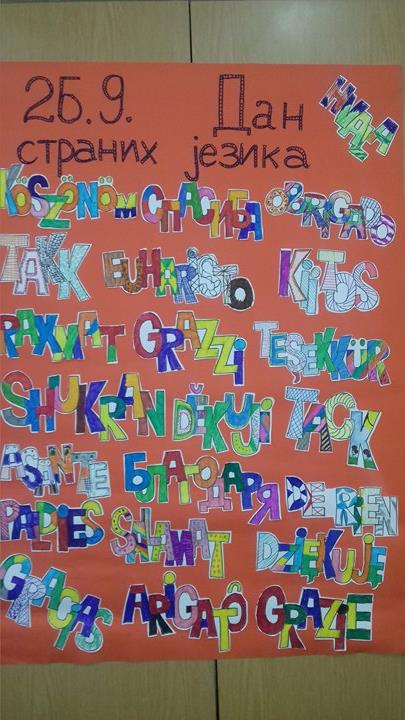 26.9. Дан
страних језика
ХВАЛА
KÖSZÖNÖM СПАСИБА OBRIGADO
TAKK EUHARISTO KIITOS
РАХМАТ GRAZZI TEŞEKKÜR
SHUKRAN DĚKUJI TACK
ASANTE БЛАГОДАРЯ DE RIEN
PALDIES SALAMAT DZIĘKUJĘ
GRACIAS ARIGATÔ GRAZIE